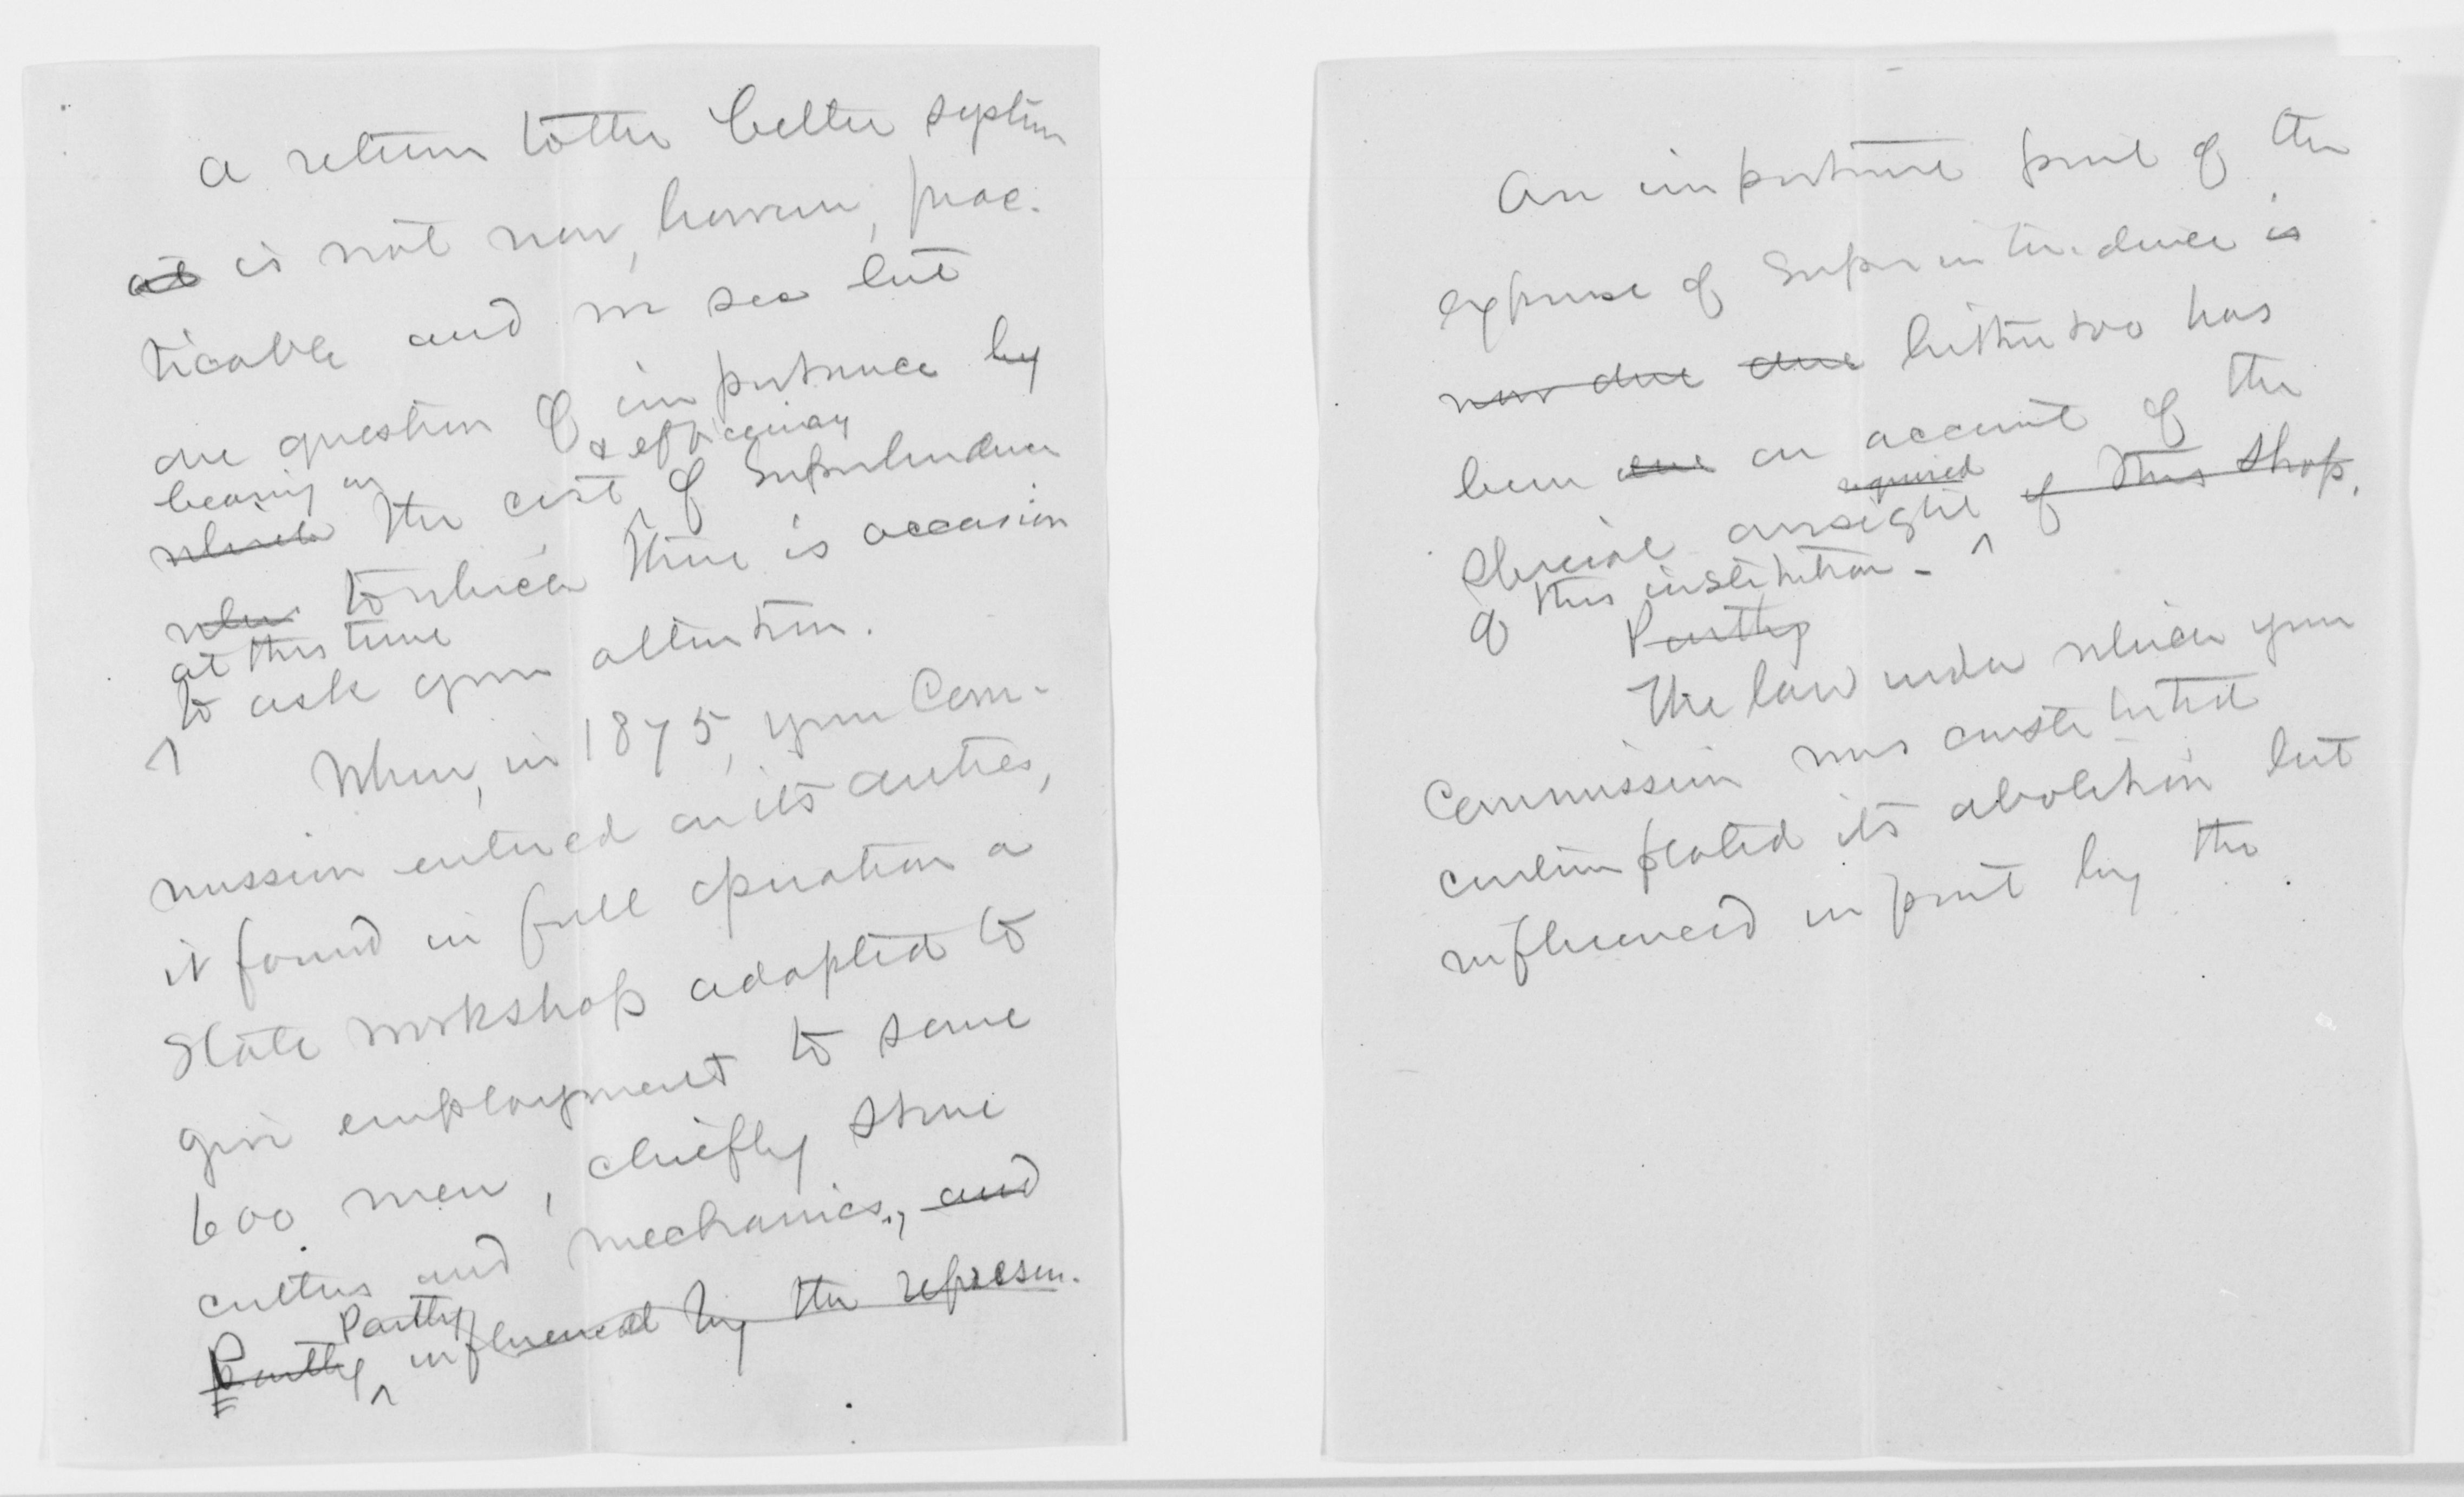 A return to the better system
at is not now, however, prac-
ticable and we see but
one question of importance by
& efficiency
bearing on
which the cost of Superintendence
when to which there is occasion
at this time
to ask your attention.
When, in 1875, your Com-
mission entered on its duties,
it found in full operation a
State workshop adapted to
give employment to some
600 men, chiefly stone
cutters and mechanics., and
Partly
Partly influenced by the represen-
An important part of the
expense of Superintendence is
now due due hitherto has
been due on account of the
required
special oversight of this shop.
of this institution -
Partly
The law under which your
Commission was constituted
contemplated its abolition but
influenced in part by the